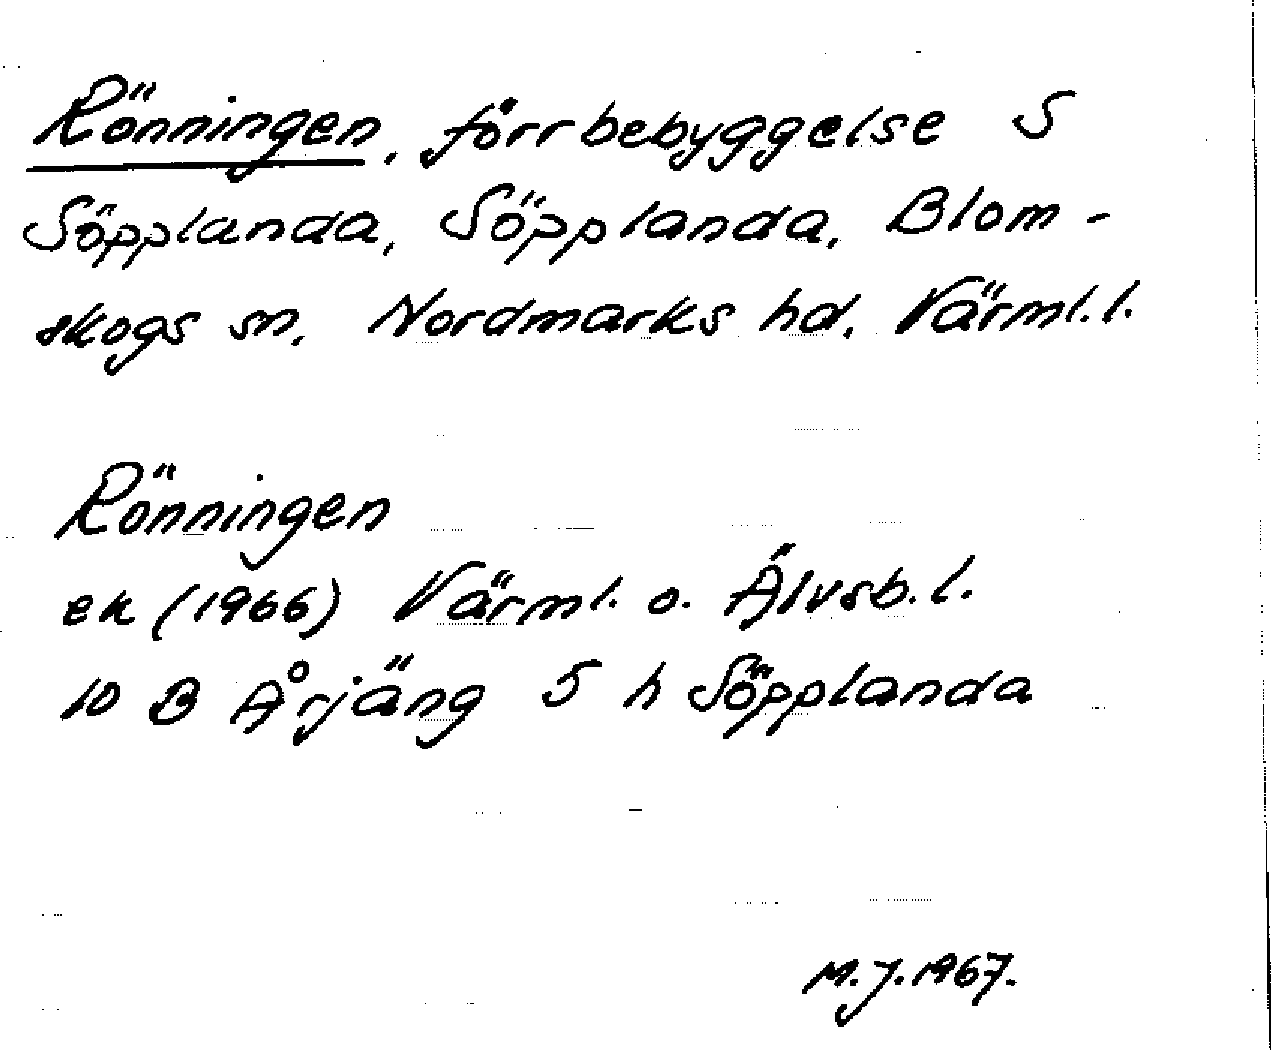 Rönningen, förr bebyggelse S
Söpplanda, Söpplanda, Blom-
skogs sn, Nordmarks hd, Värml. l.
Rönningen
ek (1966) Värml. o. Älvsb. l.
10 B Årjäng 5 h Söpplanda
M.J. 1967.